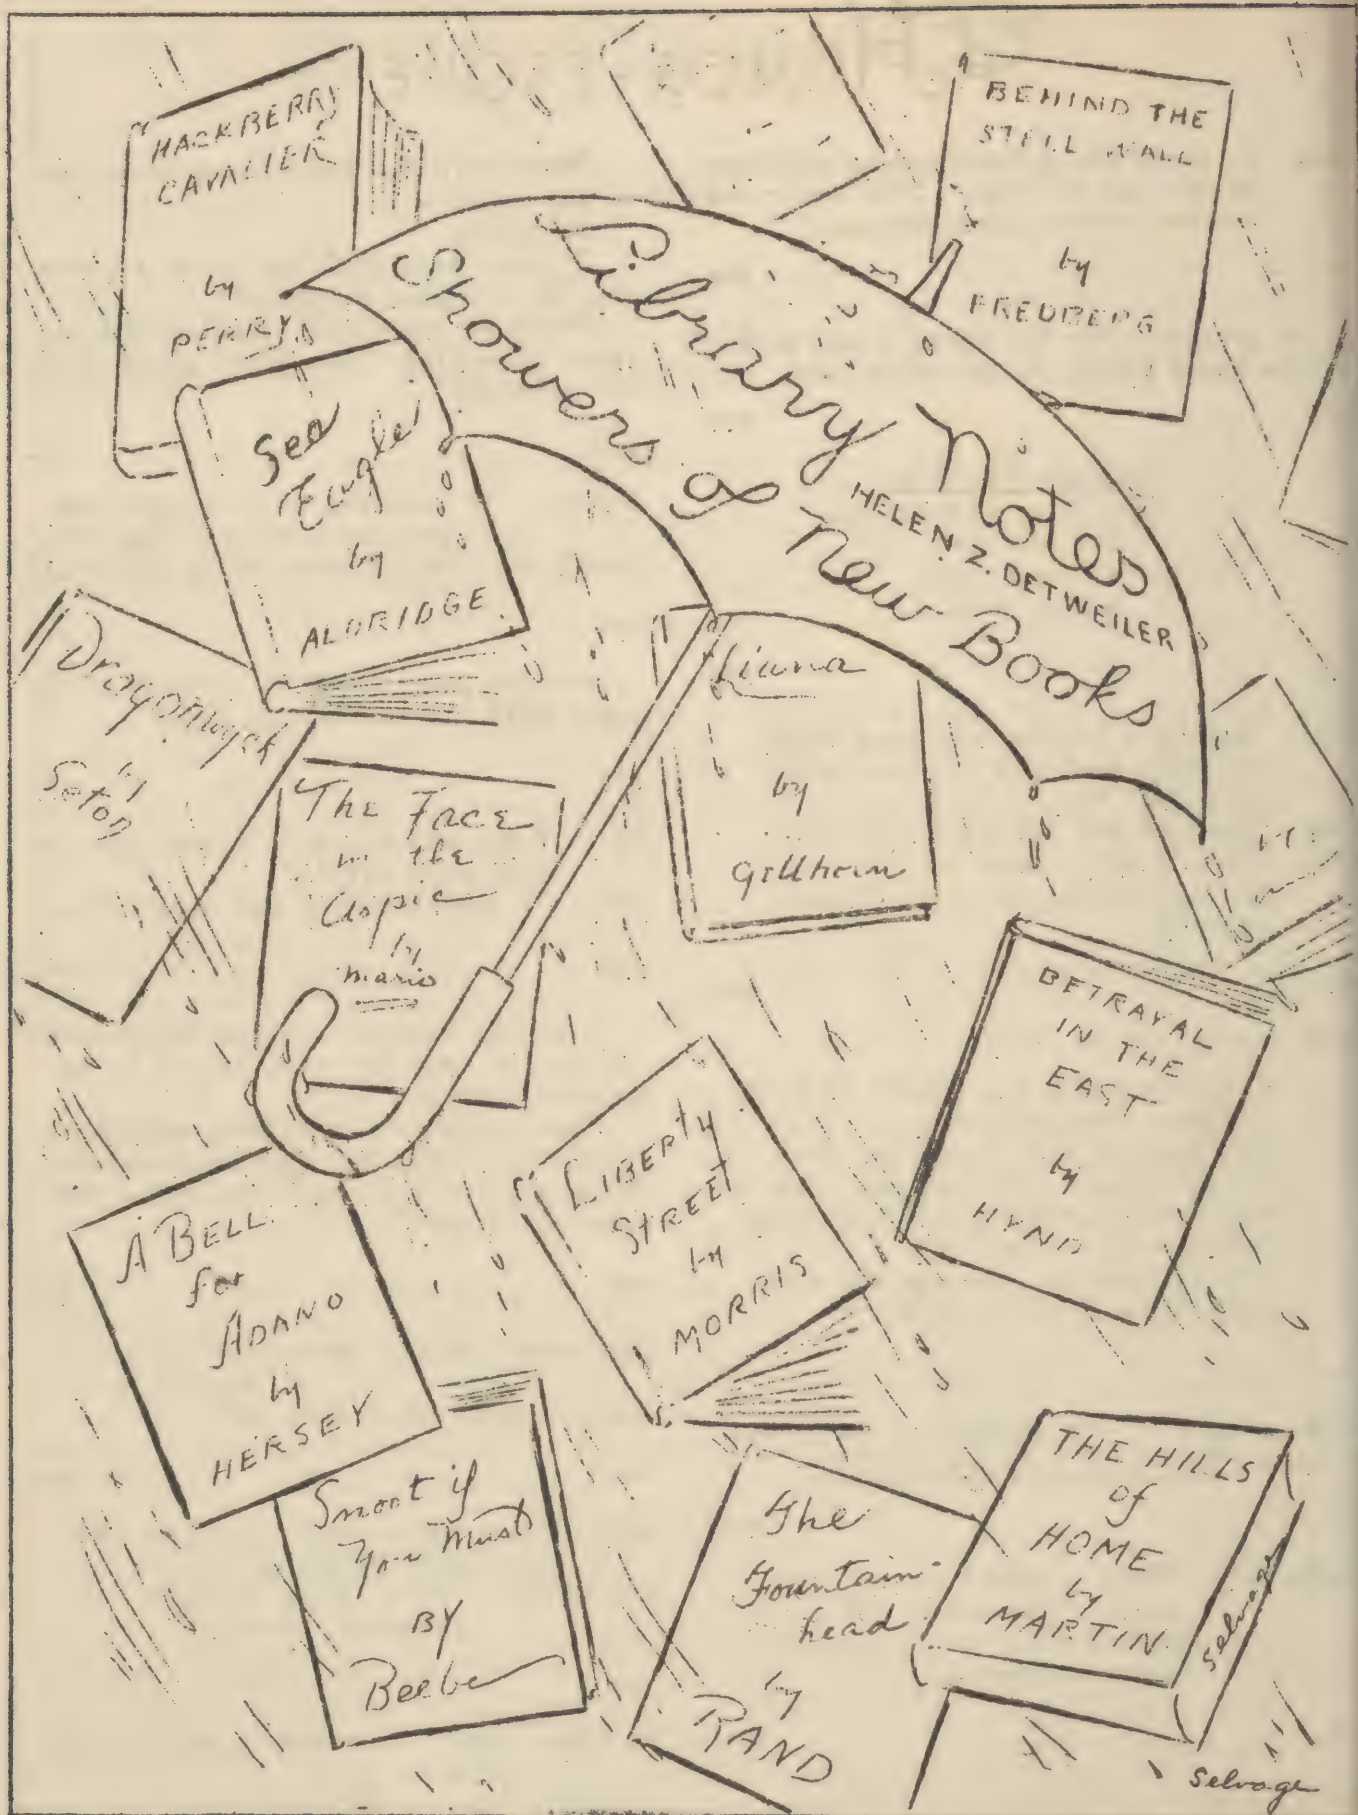 HACKBERRY
CAVALIER
by
PERRY
BEHIND THE
STEEL WALL
by
FREDBERG
Library Notes
HELEN Z. DETWEILER
Showers of New Books
Sea
Eagle
by
ALDRIDGE
Dragonwyck
by
Seton
The Face
in the
Aspic
by
mario
Liana
by
Gellhorn
BETRAYAL
IN THE
EAST
by
HYND
LIBERTY
STREET
by
MORRIS
A BELL
for
ADANO
by
HERSEY
Snoot if
You Must
BY
Beebe
The
Fountain-
head
by
RAND
THE HILLS
of
HOME
by
MARTIN
Selvage
Selvage